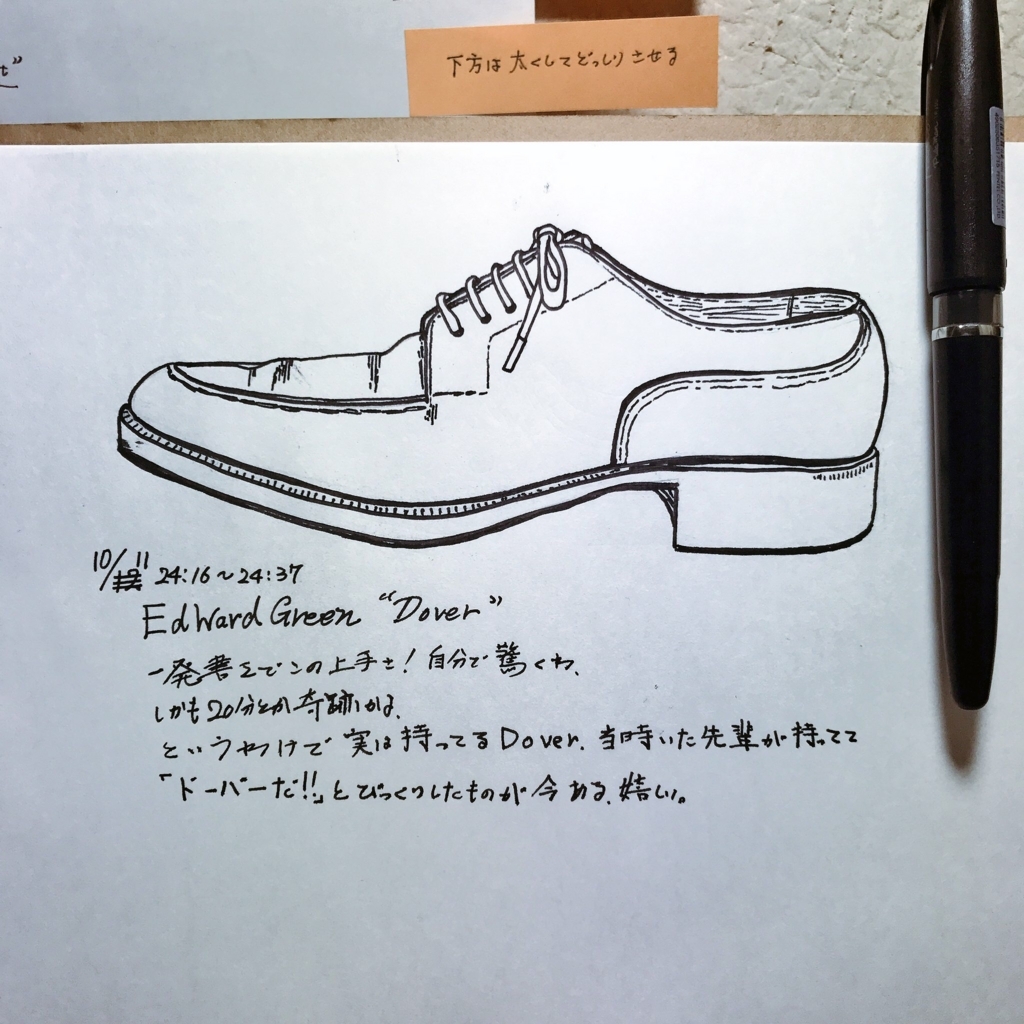 下方は太くしてどっしりさせる
10/11 24:16～24:37
Edward Green “Dover”
一発書きでこの上手さ！自分で驚くわ、
しかも20分とか奇跡かよ、
というわけで実は持ってるDover、当時いた先輩が持ってて
「ドーバーだ!!」とびっくりしたものが今ある、嬉しい。